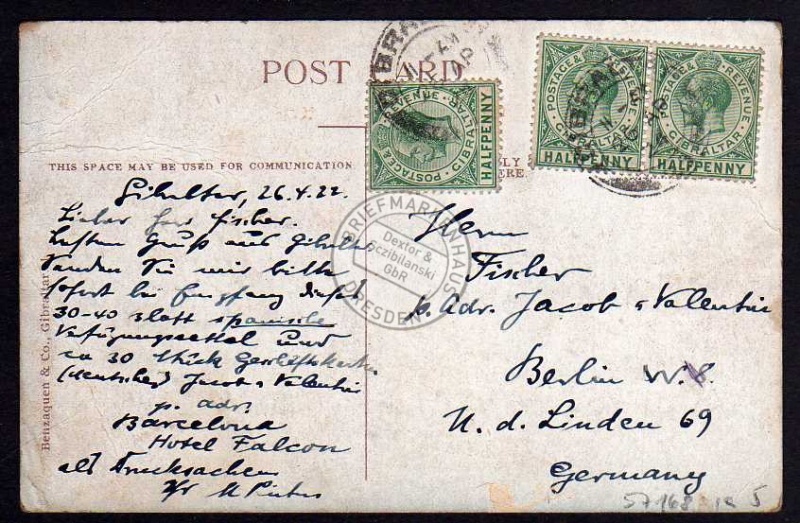 POST CARD
THIS SPACE MAY BE USED FOR COMMUNICATION
Gibraltar, 26.4.22.
Lieber Herr Fischer.
besten Gruß aus Gibraltar
Senden Sie mir bitte
sofort bei Empfang dieses
30-40 Blatt spanische
und
ca 30 Stück Geschäftskarten
(deutsche) Jacob & Valentin
p. adr.
Barcelona
Hotel Falcon
als Drucksachen
Benzaquen & Co., Gibraltar
POSTAGE & REVENUE
GIBRALTAR
HALFPENNY
POSTAGE & REVENUE
GIBRALTAR
HALFPENNY
POSTAGE & REVENUE
GIBRALTAR
HALFPENNY
BRIEFMARKENHAUS
Dextor &
GbR
DRESDEN
Herrn
Fischer
p. Adr. Jacob & Valentin
Berlin W.8.
U. d. Linden 69
Germany